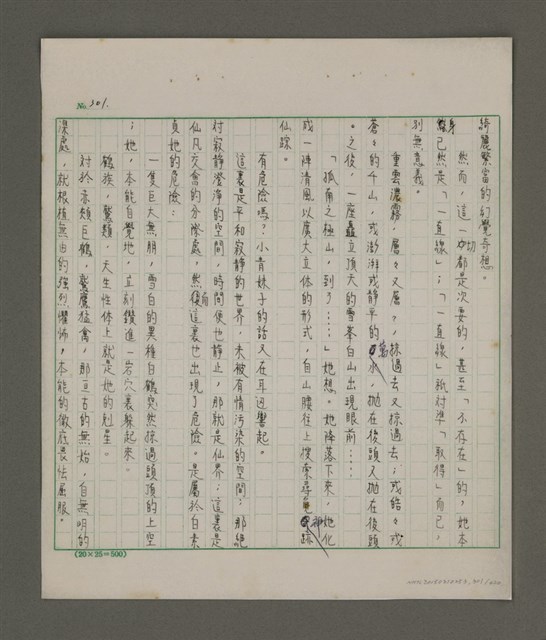 No. 301.
綺麗繁富的幻覺奇想。
然而,這一切都是次要的,甚至「不存在」的,她本
身已然是「一直線」;「一直線」祇對準「取得」而已,
別無意義。
重雲濃霧,層々又層々,掠過去又掠過去;或皓々或
蒼々的千山,或澎湃或靜平的萬水,拋在後頭又拋在後頭
。之後,一座矗立頂天的雪峯白山出現眼前……
「孤南之極山,到了……」她想。她降落下來,她化
成一陣清風以廣大立体的形式,自山腰往上搜索尋神踪
仙踪。
有危險嗎?小青妹子的話又在耳边響起。
這裏是平和寂靜的世界,未被有情污染的空間;那絕
對寂靜澄淨的空間,時間便也靜止,那就是仙界;這裏是
仙凡交會的分際處,然而這裏也出現了危險。是屬於白素
貞她的危險:
一隻巨大無朋,雪白的異種白鶴突然掠過頭頂的上空
;她,本能自覺地,立刻鑽進一岩穴裏躲起來。
鶴族,鷲類,天生性体上就是她的剋星。
對於赤頰巨鶴,鷲鷹猛禽,那亘古的無始,自無明的
深處,就根植無由的強烈懼怖,本能的徹底畏怯屈服。
(20×25=500)